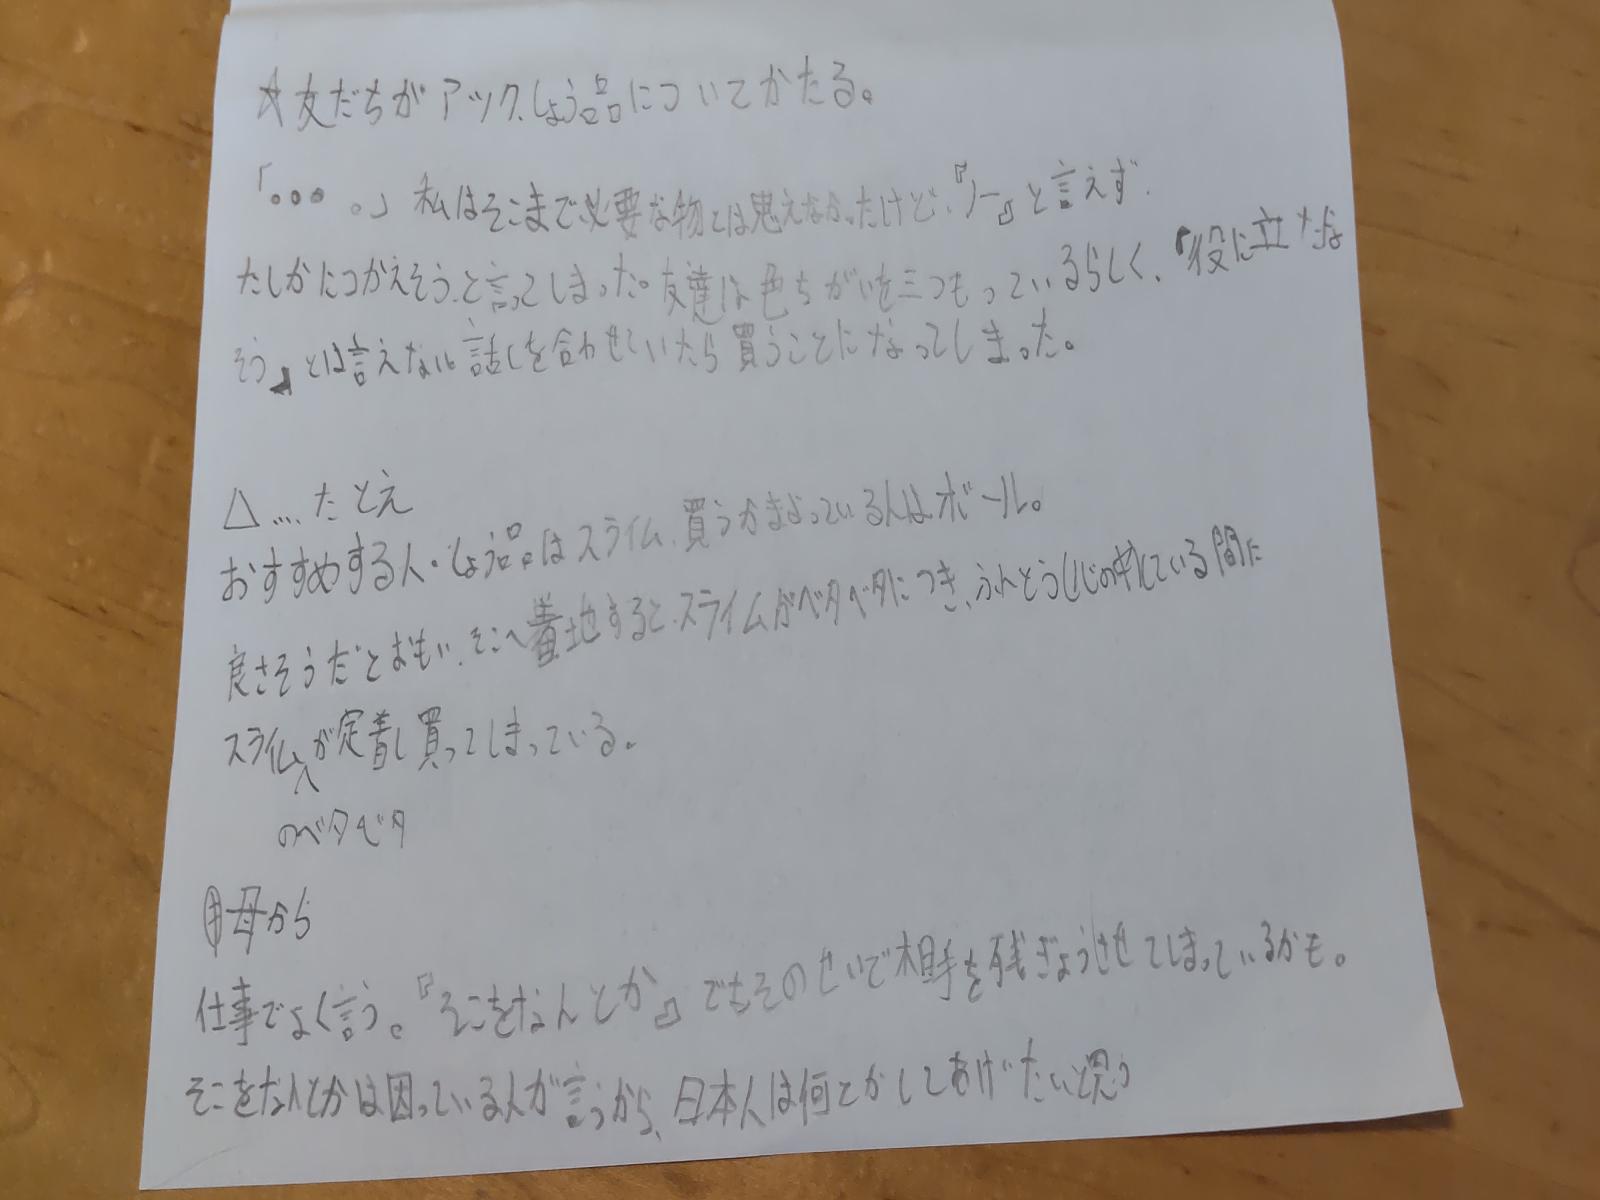 ☆友だちがアツくしょう品についてかたる。
「∘∘∘ 。」私はそこまで必要な物とは思えなかったけど、『ノー』と言えず、
たしかにつかえそう、と言ってしまった。友達は色ちがいを三つもっているらしく、『役に立たなさ
そう』とは言えない話しを合わせていたら買うことになってしまった。
△…たとえ
おすすめする人・しょう品はスライム、買うかまよっている人はボール。
良さそうだとおもい、そこへ着地すると、スライムがベタベタにつき、ふんとうしている間に
スライムが定着し買ってしまっている。
のベタベタ
母から
仕事でよく言う。『そこをなんとか』でもそのせいで相手を残ぎょうさせてしまっているかも。
そこをなんとかは困っている人が言うから、日本人は何とかしてあげたいと思う